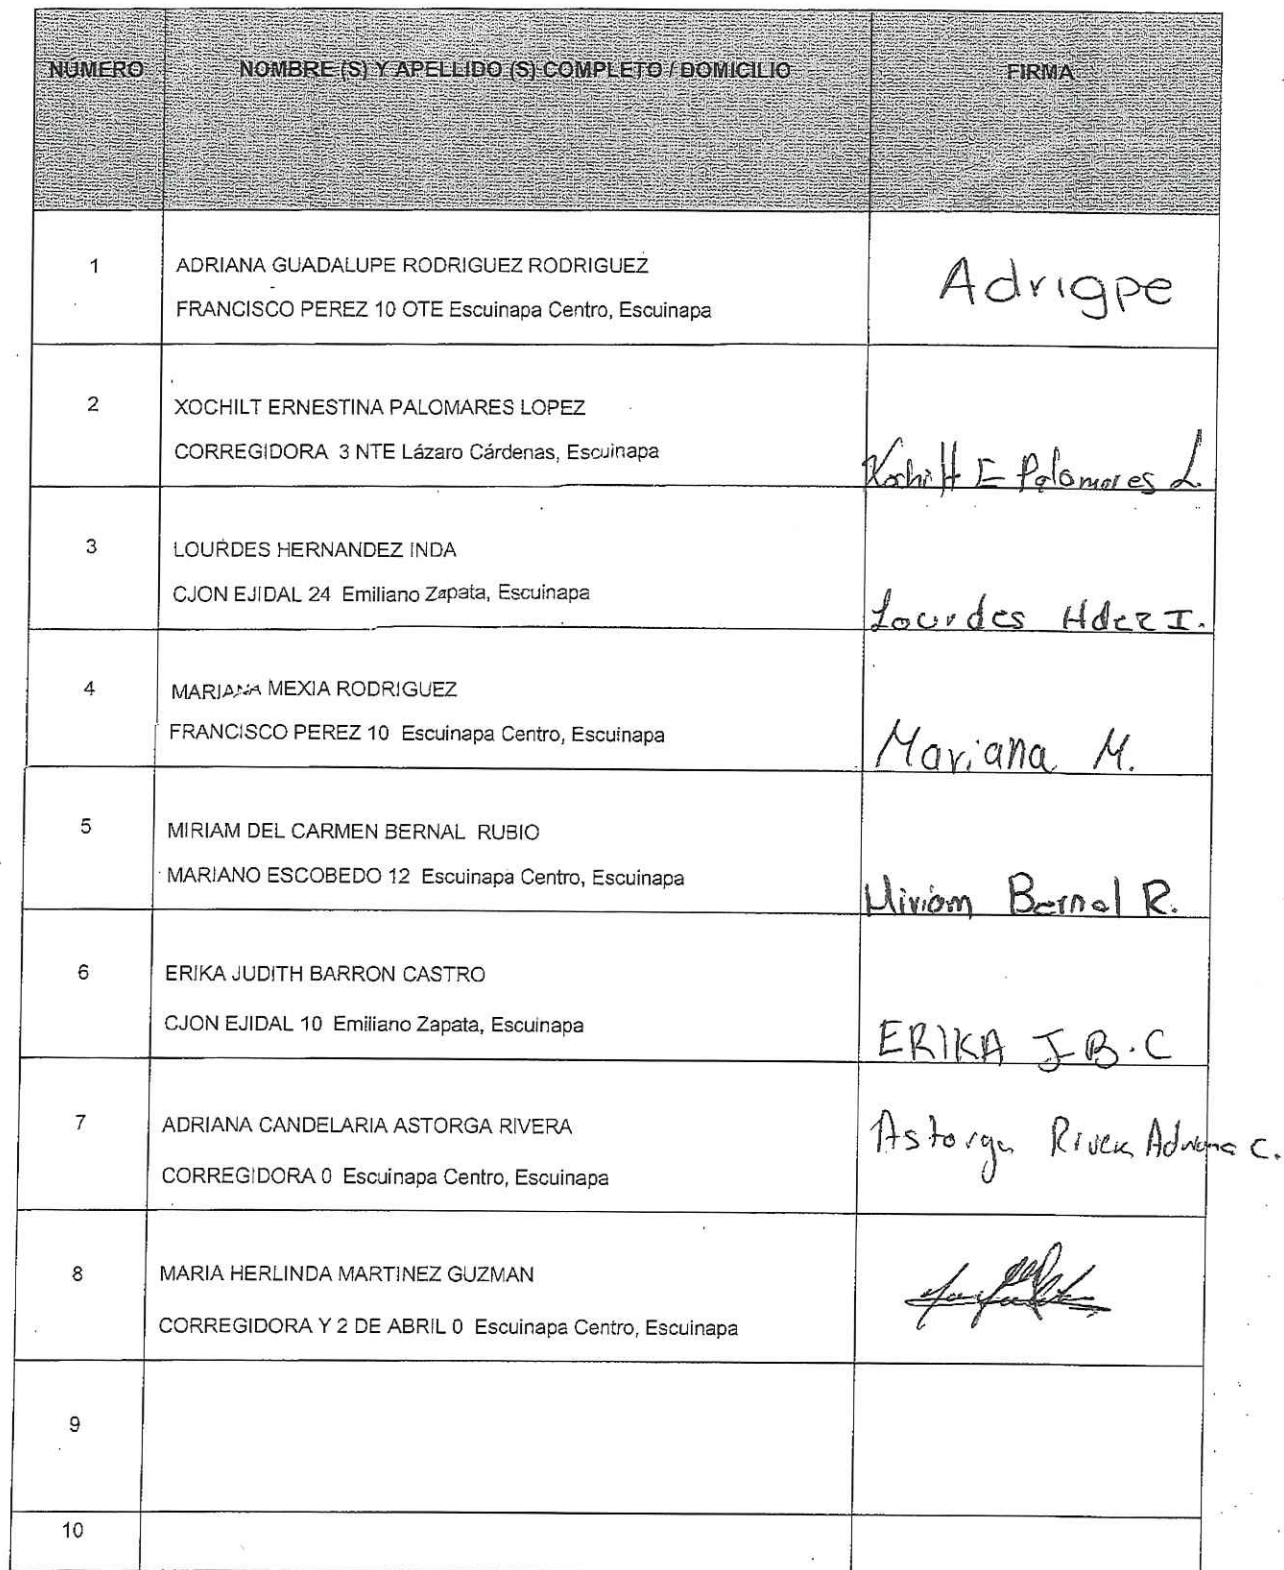 NÚMERO NOMBRE (S) Y APELLIDO (S) COMPLETO / DOMICILIO FIRMA
1 ADRIANA GUADALUPE RODRIGUEZ RODRIGUEZ Adrigpe
FRANCISCO PEREZ 10 OTE Escuinapa Centro, Escuinapa
2 XOCHILT ERNESTINA PALOMARES LOPEZ
CORREGIDORA 3 NTE Lázaro Cárdenas, Escuinapa Xochilt E Palomares L.
3 LOURDES HERNANDEZ INDA
CJON EJIDAL 24 Emiliano Zapata, Escuinapa Lourdes Hdez I.
4 MARIANA MEXIA RODRIGUEZ
FRANCISCO PEREZ 10 Escuinapa Centro, Escuinapa Mariana M.
5 MIRIAM DEL CARMEN BERNAL RUBIO
MARIANO ESCOBEDO 12 Escuinapa Centro, Escuinapa Miriam Bernal R.
6 ERIKA JUDITH BARRON CASTRO
CJON EJIDAL 10 Emiliano Zapata, Escuinapa ERIKA J.B.C
7 ADRIANA CANDELARIA ASTORGA RIVERA Astorga Rivera Adriana C.
CORREGIDORA 0 Escuinapa Centro, Escuinapa
8 MARIA HERLINDA MARTINEZ GUZMAN
CORREGIDORA Y 2 DE ABRIL 0 Escuinapa Centro, Escuinapa
9
10